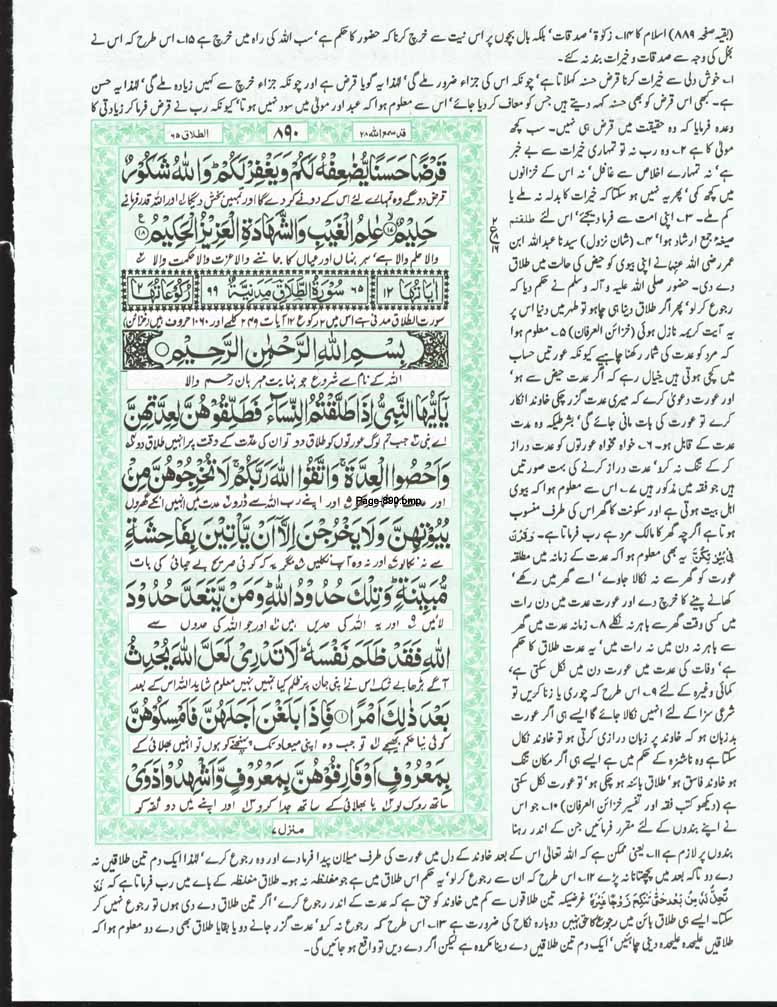 (بقیہ صفحہ ۸۸۹) اسلام کا ۱۴۔ زکوٰۃ' صدقات' بلکہ بال بچوں پر اس نیت سے خرچ کرنا کہ حضور کا حکم ہے' سب اللہ کی راہ میں خرچ ہے ۱۵۔ اس طرح کہ اس نے
بخل کی وجہ سے صدقات و خیرات بند نہ کئے۔
۱۔ خوش دلی سے خیرات کرنا قرض حسنہ کہلاتا ہے' چونکہ اس کی جزاء ضرور ملے گی' لہٰذا یہ گویا قرض ہے اور چونکہ جزاء خرچ سے کہیں زیادہ ملے گی' لہٰذا یہ حسن
ہے۔ کبھی اس قرض کو بھی حسنہ کہہ دیتے ہیں جس کو معاف کر دیا جائے' اس سے معلوم ہوا کہ عبد اور مولیٰ میں سود نہیں ہوتا' کیونکہ رب نے قرض فرما کر زیادتی کا
قد سمع اللہ ۲۸
۸۹۰
الطلاق ۶۵
قَرْضًا حَسَنًا يُّضٰعِفْهُ لَكُمْ وَيَغْفِرْ لَكُمْ وَاللّٰهُ شَكُوْرٌ
قرض دو گے وہ تمہارے لئے اس کے دونے کر دے گا اور تمہیں بخش دیگا اور اللہ قدر فرمانے
حَلِيْمٌ عٰلِمُ الْغَيْبِ وَالشَّهَادَةِ الْعَزِيْزُ الْحَكِيْمُ
والا حلم والا ہے' ہر نہاں اور عیاں کا جاننے والا عزت والا حکمت والا
اٰيَاتُهَا ۱۲ ۶۵ سُوْرَةُ الطَّلَاقِ مَدَنِيَّةٌ ۹۹ رُكُوْعَاتُهَا ۲
سورت الطلاق مدنی ہے اس میں ۲ رکوع ۱۲ آیات ۲۴۹ کلمے اور ۱۰۶۰ حروف ہیں (خزائن)
بِسْمِ اللّٰهِ الرَّحْمٰنِ الرَّحِيْمِ
اللہ کے نام سے شروع جو نہایت مہربان رحم والا
يٰۤاَيُّهَا النَّبِيُّ اِذَا طَلَّقْتُمُ النِّسَآءَ فَطَلِّقُوْهُنَّ لِعِدَّتِهِنَّ
اے نبی جب تم لوگ عورتوں کو طلاق دو تو ان کی عدت کے وقت پر انہیں طلاق دو
وَاَحْصُوا الْعِدَّةَ وَاتَّقُوا اللّٰهَ رَبَّكُمْ لَا تُخْرِجُوْهُنَّ مِنْۢ
اور اپنے رب اللہ سے ڈرو عدت میں انہیں انکے گھروں
Page-890.bmp
بُيُوْتِهِنَّ وَلَا يَخْرُجْنَ اِلَّاۤ اَنْ يَّاْتِيْنَ بِفَاحِشَةٍ
سے نہ نکالو اور نہ وہ آپ نکلیں مگر یہ کہ کوئی صریح بے حیائی کی بات
مُّبَيِّنَةٍ وَتِلْكَ حُدُوْدُ اللّٰهِ وَمَنْ يَّتَعَدَّ حُدُوْدَ
لائیں اور یہ اللہ کی حدیں ہیں اور جو اللہ کی حدوں سے
اللّٰهِ فَقَدْ ظَلَمَ نَفْسَهٗ لَا تَدْرِيْ لَعَلَّ اللّٰهَ يُحْدِثُ
آگے بڑھا بے شک اس نے اپنی جان پر ظلم کیا تمہیں نہیں معلوم شاید اللہ اس کے بعد
بَعْدَ ذٰلِكَ اَمْرًا ۱ فَاِذَا بَلَغْنَ اَجَلَهُنَّ فَاَمْسِكُوْهُنَّ
کوئی نیا حکم بھیجے تو جب وہ اپنی میعاد تک پہنچنے کو ہوں تو انہیں بھلائی کے
بِمَعْرُوْفٍ اَوْ فَارِقُوْهُنَّ بِمَعْرُوْفٍ وَّاَشْهِدُوْا ذَوَيْ
ساتھ روک لو یا بھلائی کے ساتھ جدا کر دو اور اپنے میں دو ثقہ کو
منزل ۷
وعدہ فرمایا کہ وہ حقیقت میں قرض ہی نہیں۔ سب کچھ
مولیٰ کا ہے ۲۔ وہ رب نہ تو تمہاری خیرات سے بے خبر
ہے' نہ تمہارے اخلاص سے غافل' نہ اس کے خزانوں
میں کچھ کمی' پھر یہ نہیں ہو سکتا کہ خیرات کا بدلہ نہ ملے یا
کم ملے۔ ۳۔ اپنی امت سے فرما دیجئے' اس لئے طلقتم
صیغہ جمع ارشاد ہوا' ۴۔ (شان نزول) سیدنا عبداللہ ابن
عمر رضی اللہ عنہما نے اپنی بیوی کو حیض کی حالت میں طلاق
دے دی۔ حضور صلی اللہ علیہ و آلہ وسلم نے حکم دیا کہ
رجوع کر لو' پھر اگر طلاق دینا ہی چاہو تو طہر میں دینا اس پر
یہ آیت کریمہ نازل ہوئی (خزائن العرفان) ۵۔ معلوم ہوا
کہ مرد کو عدت کی شمار رکھنا چاہیے کیونکہ عورتیں حساب
میں کچی ہوتی ہیں خیال رہے کہ اگر عدت حیض سے ہو'
اور عورت دعویٰ کرے کہ میری عدت گزر چکی خاوند انکار
کرے تو عورت کی بات مانی جائے گی' بشرطیکہ وہ مدت
عدت کے قابل ہو۔ ۶۔ خواہ مخواہ عورتوں کو عدت دراز
کر کے تنگ نہ کرو' عدت دراز کرنے کی بہت صورتیں
ہیں جو فقہ میں مذکور ہیں ۷۔ اس سے معلوم ہوا کہ بیوی
اہل بیت ہوتی ہے اور سکونت کا گھر اس کی طرف منسوب
ہوتا ہے اگرچہ گھر کا مالک مرد ہے رب فرماتا ہے۔ وَقَرْنَ
فِيْ بُيُوْتِكُنَّ یہ بھی معلوم ہوا کہ عدت کے زمانہ میں مطلقہ
عورت کو گھر سے نہ نکالا جاوے' اسے گھر میں رکھے'
کھانے پینے کا خرچ دے اور عورت عدت میں دن رات
میں کسی وقت گھر سے باہر نہ نکلے ۸۔ زمانہ عدت میں گھر
سے باہر نہ دن میں نہ رات میں' یہ عدت طلاق کا حکم
ہے' وفات کی عدت میں عورت دن میں نکل سکتی ہے،
کمائی وغیرہ کے لئے ۹۔ اس طرح کہ چوری یا زنا کریں تو
شرعی سزا کے لئے انہیں نکالا جائے گا ایسے ہی اگر عورت
بد زبان ہو کہ خاوند پر زبان درازی کرتی ہو تو خاوند نکال
سکتا ہے وہ ناشزہ کے حکم میں ہے ایسے ہی اگر مکان تنگ
ہو خاوند فاسق ہو' طلاق بائنہ ہو چکی ہو' تو عورت نکل سکتی
ہے (دیکھو کتب فقہ اور تفسیر خزائن العرفان) ۱۰۔ جو اس
نے اپنے بندوں کے لئے مقرر فرمائیں جن کے اندر رہنا
بندوں پر لازم ہے ۱۱۔ یعنی ممکن ہے کہ اللہ تعالیٰ اس کے بعد خاوند کے دل میں عورت کی طرف میلان پیدا فرما دے اور وہ رجوع کرے' لہٰذا ایک دم تین طلاقیں نہ
دے دو تاکہ بعد میں پچھتانا نہ پڑے ۱۲۔ اس طرح کہ ان سے رجوع کر لو' یہ حکم اس طلاق میں ہے جو مغلظہ نہ ہو۔ طلاق مغلظہ کے بارے میں رب فرماتا ہے کہ فَلَا
تَحِلُّ لَهٗ مِنْۢ بَعْدُ حَتّٰى تَنْكِحَ زَوْجًا غَيْرَهٗ غرضیکہ تین طلاقوں سے کم میں خاوند کو حق ہے کہ عدت کے اندر رجوع کرے' اگر تین طلاق دے دی ہوں تو رجوع نہیں کر
سکتا۔ ایسے ہی طلاق بائن میں رجوع کا حق نہیں دوبارہ نکاح کی ضرورت ہے ۱۳۔ اس طرح کہ رجوع نہ کرو' عدت گزر جانے دو یا بقایا طلاق بھی دے دو معلوم ہوا کہ
طلاقیں علیحدہ علیحدہ دینی چاہئیں' ایک دم تین طلاقیں دے دینا مکروہ ہے لیکن اگر دے دیں تو واقع ہو جائیں گی۔